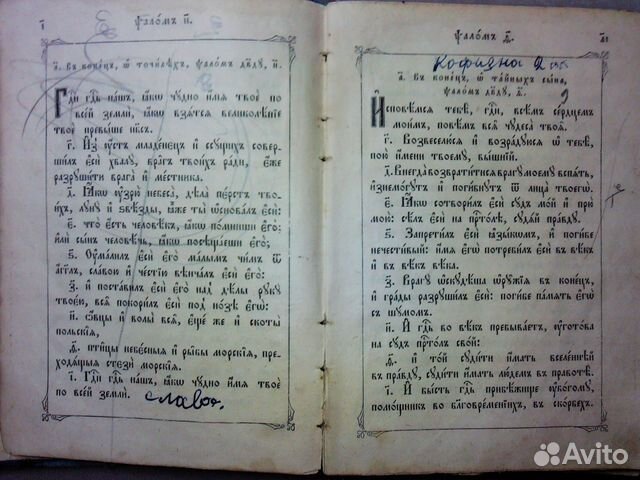 і
Ѱало́мъ и҃.
а҃. Въ коне́цъ, ѡ҆ точи́лѣхъ, ѱало́мъ дв҃ду, и҃.
Гдⷭ҇и гдⷭ҇ь на́шъ, ꙗ҆́кѡ чꙋ́дно и҆́мѧ твоѐ по
все́й землѝ, ꙗ҆́кѡ взѧ́тсѧ великолѣ́піе
твоѐ превы́ше нб҃съ.
г҃. И҆з̾ ᲂу҆́стъ младе́нецъ и҆ ссꙋ́щихъ совер-
ши́лъ є҆сѝ хвалꙋ̀, вра̑гъ твои́хъ ра́ди, є҆́же
разрꙋши́ти врага̀ и҆ ме́стника.
д҃. Ꙗ҆́кѡ ᲂу҆зрю̀ небеса̀, дѣла̀ пе́рстъ тво-
и́хъ, лꙋнꙋ̀ и҆ ѕвѣ́зды, ꙗ҆̀же ты̀ ѡ҆снова́лъ є҆сѝ:
є҃. что̀ є҆́сть человѣ́къ, ꙗ҆́кѡ по́мниши є҆го̀;
и҆лѝ сы́нъ человѣ́чь, ꙗ҆́кѡ посѣща́еши є҆го̀;
ѕ҃. Оу҆ма́лилъ є҆сѝ є҆го̀ ма́лымъ чи́мъ ѿ
а҆́гг҃лъ, сла́вою и҆ че́стію вѣнча́лъ є҆сѝ є҆го̀:
з҃. и҆ поста́вилъ є҆сѝ є҆го̀ над̾ дѣ́лы рꙋкꙋ̀
твоє́ю, всѧ̑ покори́лъ є҆сѝ под̾ но́зѣ є҆гѡ̀:
и҃. ѻ҆́вцы и҆ волы̀ всѧ̑, є҆ще́ же и҆ скоты̀
польскі́ѧ,
ѳ҃. пти̑цы небє́сныѧ и҆ ры̑бы морскі̑ѧ, пре-
ходѧ́щыѧ стєзѝ морскі̑ѧ.
і҃. Гдⷭ҇и гдⷭ҇ь на́шъ, ꙗ҆́кѡ чꙋ́дно и҆́мѧ твоѐ
по все́й землѝ.
слава.
Ѱало́мъ ѳ҃.
а҃і
а҃. Въ коне́цъ, ѡ҆ та́йныхъ сы́на,
ѱало́мъ дв҃дꙋ, ѳ҃.
И҆сповѣ́мсѧ тебѣ̀, гдⷭ҇и, всѣ́мъ се́рдцемъ
мои́мъ, повѣ́мъ всѧ̑ чꙋдеса̀ твоѧ̑.
г҃. Возвеселю́сѧ и҆ возра́дꙋюсѧ ѡ҆ тебѣ̀,
пою̀ и҆́мени твоемꙋ̀, вы́шній.
д҃. Внегда̀ возврати́тисѧ врагꙋ̀ моемꙋ̀ вспѧ́ть,
и҆знемо́гꙋтъ и҆ поги́бнꙋтъ ѿ лица̀ твоегѡ̀.
є҃. Ꙗ҆́кѡ сотвори́лъ є҆сѝ сꙋ́дъ мо́й и҆ прю̀
мою̀: сѣ́лъ є҆сѝ на прⷭ҇то́лѣ, сꙋдѧ́й пра́вдꙋ.
ѕ҃. Запрети́лъ є҆сѝ ꙗ҆зы́кѡмъ, и҆ поги́бе
нечести́вый: и҆́мѧ є҆гѡ̀ потреби́лъ є҆сѝ въ вѣ́къ
и҆ въ вѣ́къ вѣ́ка.
з҃. Врагꙋ̀ ѡ҆скꙋдѣ́ша ѻ҆рꙋ̑жіѧ въ коне́цъ,
и҆ гра́ды разрꙋши́лъ є҆сѝ: поги́бе па́мѧть є҆гѡ̀
съ шꙋ́момъ.
и҃. И҆ гдⷭ҇ь во вѣ́къ пребыва́етъ, ᲂу҆гото́ва
на сꙋ́дъ прⷭ҇то́лъ сво́й:
ѳ҃. и҆ то́й сꙋди́ти и҆́мать вселе́ннѣй
въ пра́вдꙋ, сꙋди́ти и҆́мать лю́демъ въ правотѣ̀.
і҃. И҆ бы́сть гдⷭ҇ь прибѣ́жище ᲂу҆бо́гомꙋ,
помо́щникъ во бл҃говре́менїихъ, въ ско́рбехъ.
Avito